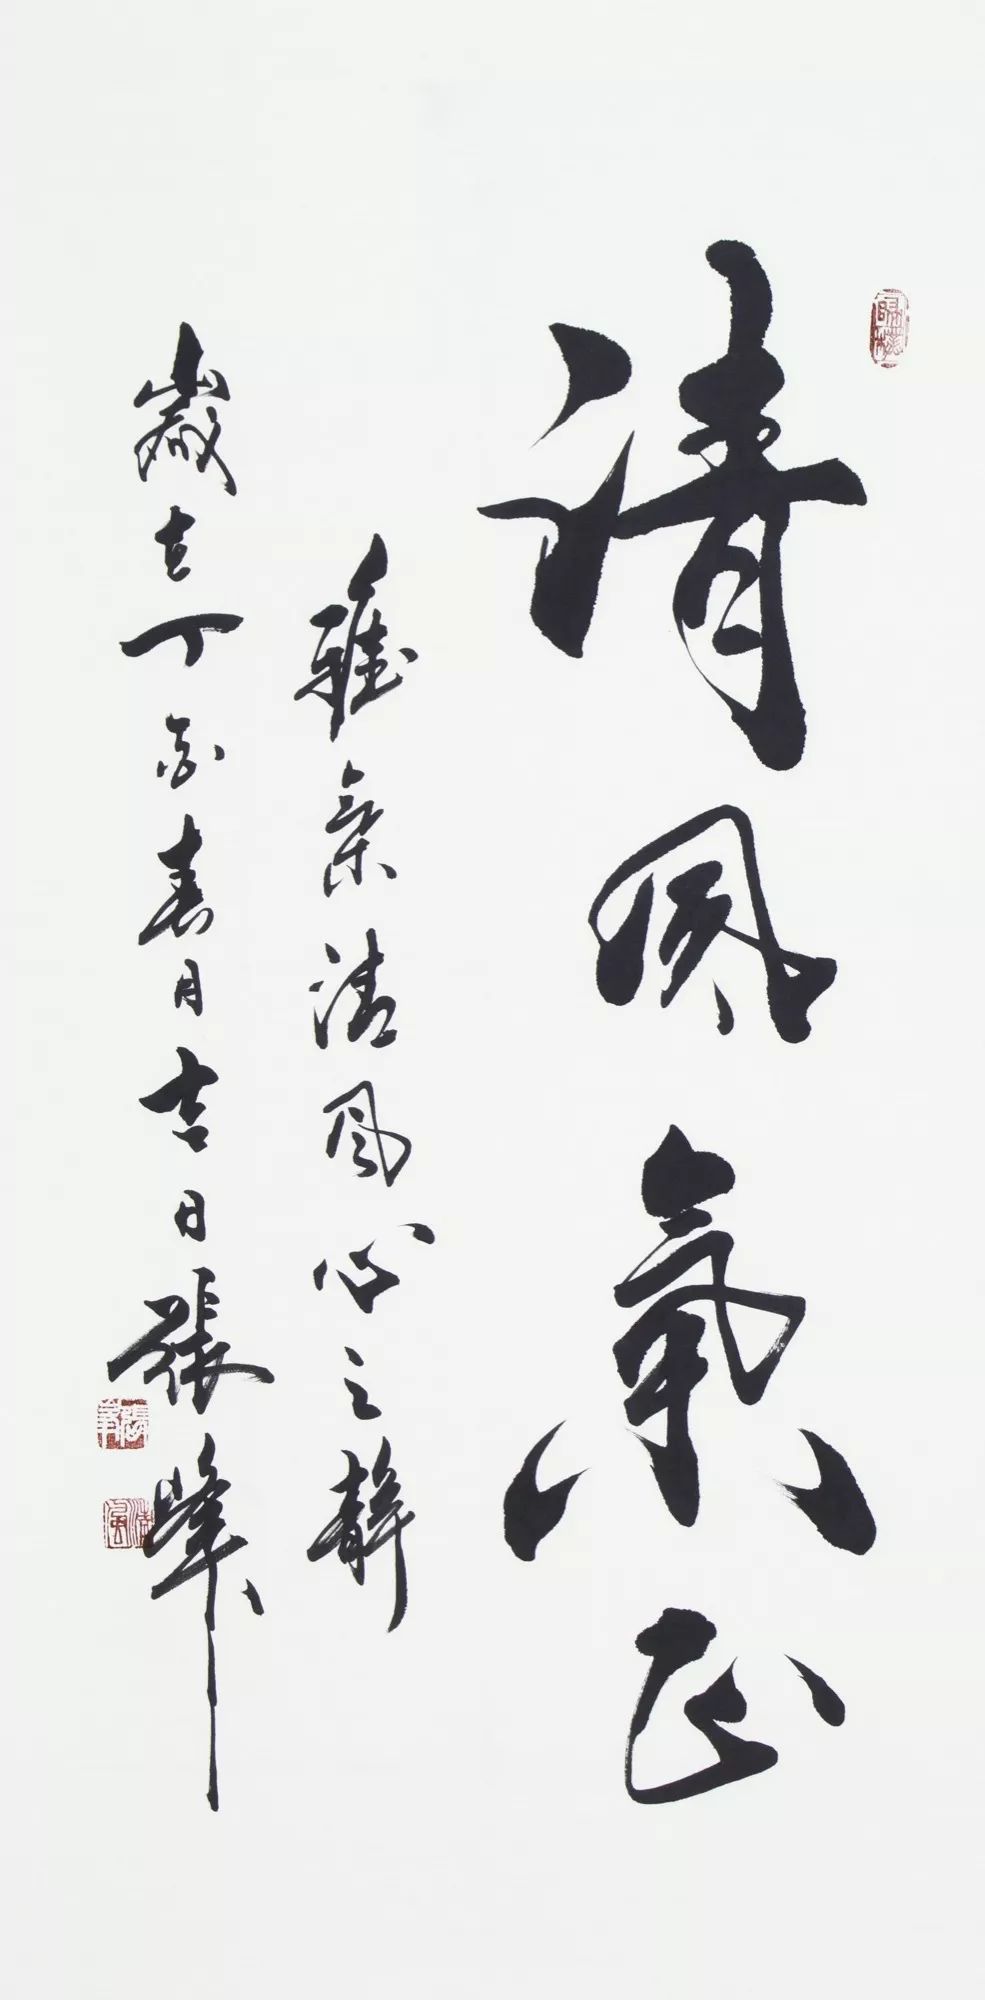 清風氣正
雅清風心之靜
歲在丁酉春月吉日張峰